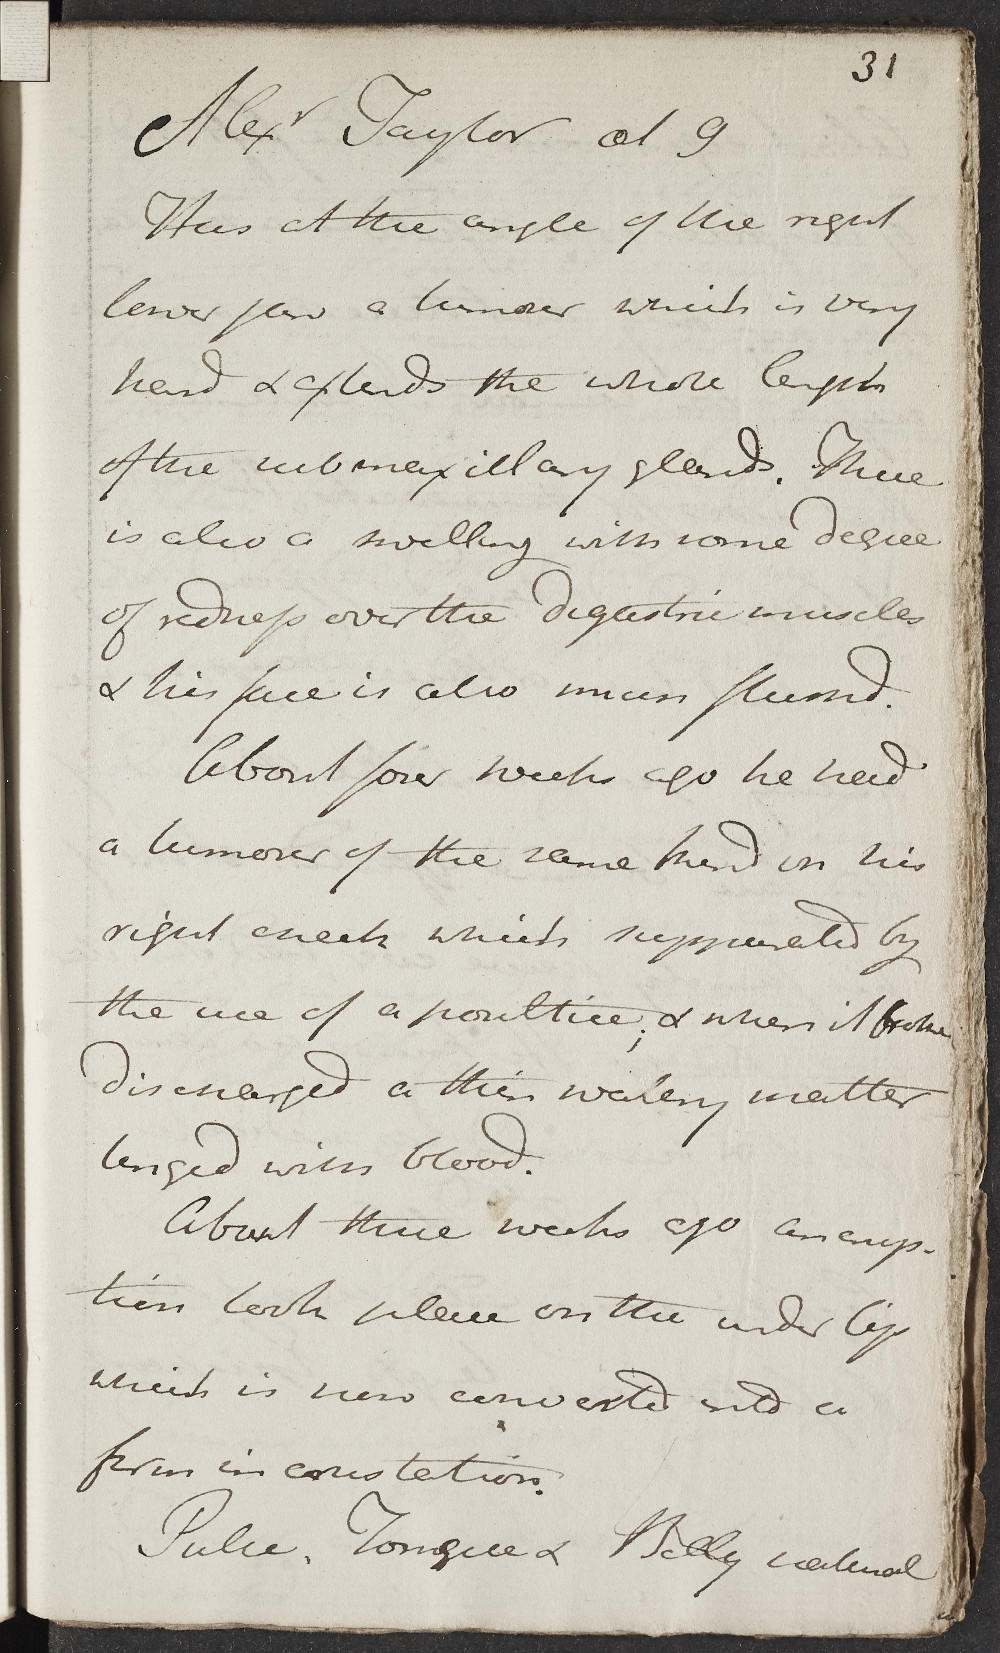 31
Alexr Taylor æt 9
Has at the angle of the right
lower jaw a tumour which is very
hard & extends the whole length
of the submaxillary glands. There
is also a swelling with some degree
of redness over the digastric muscles
& his face is also much flushd.
About four weeks ago he had
a tumour of the same kind on his
right cheek which suppurated by
the use of a poultice; & when it broke
discharged a thin watery matter
tinged with blood.
About three weeks ago an erup-
tion took place on the under lip
which is now converted into a
firm incrustation.
Pulse, Tongue & Belly natural